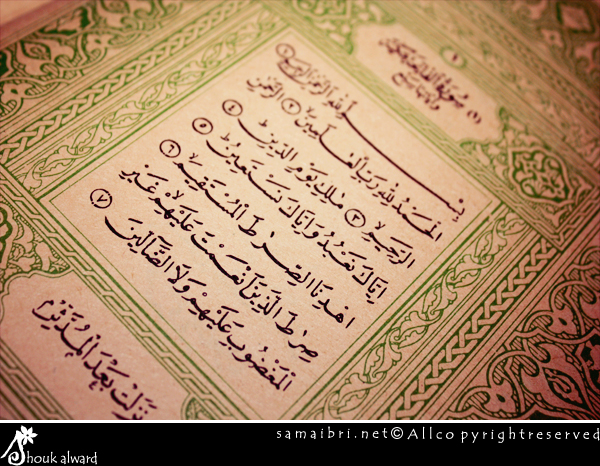 (١) سُورَةُ الفَاتِحَةِ مَكِّيَّة
وآياتها سبع
بِسْمِ اللَّهِ الرَّحْمَٰنِ الرَّحِيمِ ١
الْحَمْدُ لِلَّهِ رَبِّ الْعَٰلَمِينَ ٢ الرَّحْمَٰنِ
الرَّحِيمِ ٣ مَٰلِكِ يَوْمِ الدِّينِ ٤
إِيَّاكَ نَعْبُدُ وَإِيَّاكَ نَسْتَعِينُ ٥
اهْدِنَا الصِّرَٰطَ الْمُسْتَقِيمَ ٦
صِرَٰطَ الَّذِينَ أَنْعَمْتَ عَلَيْهِمْ غَيْرِ
الْمَغْضُوبِ عَلَيْهِمْ وَلَا الضَّالِّينَ ٧
نَزَلَتْ بَعْدَ الْمُدَّثِّرِ
samaibri.net© Allco pyrightreserved
Shouk alward